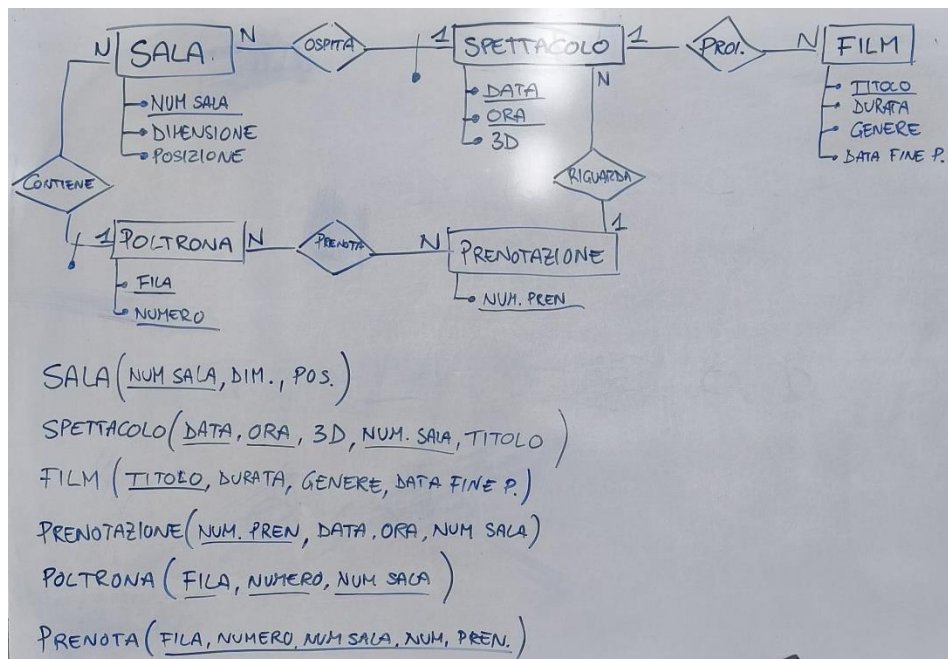 N SALA N OSPITA 1 SPETTACOLO 1 PROI. N FILM
NUM SALA
DIMENSIONE
POSIZIONE
DATA
ORA
3D
N
TITOLO
DURATA
GENERE
DATA FINE P.
CONTIENE
RIGUARDA
1 POLTRONA N PRENOTA N PRENOTAZIONE 1
FILA
NUMERO
NUM. PREN
SALA (NUM SALA, DIM., POS.)
SPETTACOLO (DATA, ORA, 3D, NUM. SALA, TITOLO)
FILM (TITOLO, DURATA, GENERE, DATA FINE P.)
PRENOTAZIONE (NUM. PREN, DATA, ORA, NUM SALA)
POLTRONA (FILA, NUMERO, NUM SALA)
PRENOTA (FILA, NUMERO, NUM SALA, NUM, PREN.)